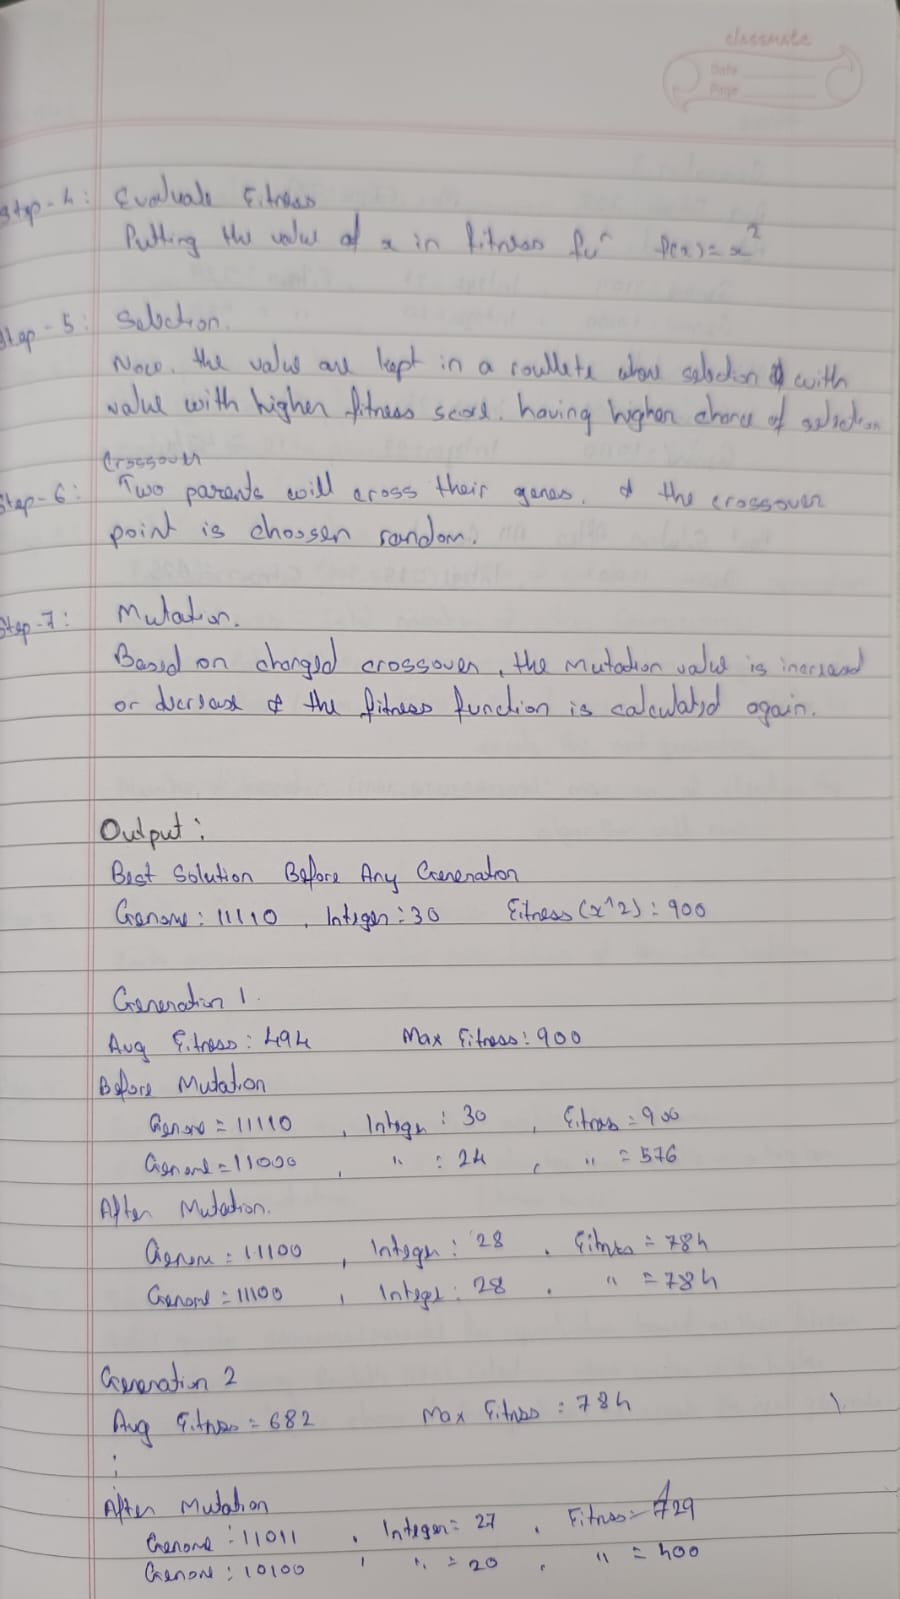 classmate
Date
Page
Step-4: Evaluate Fitness
Putting the value of x in fitness fuⁿ f(x) = x²
Step-5: Selection.
Now, the value are kept in a roullete where selection of with
value with higher fitness score. having higher chance of selection
Crossover
Step-6: Two parents will cross their genes. & the crossover
point is choosen random.
Step-7: Mutation.
Based on changed crossover, the mutation value is increased
or decrease & the fitness function is calculated again.
Output:
Best Solution Before Any Generation
Genome: 11110, Integer: 30 Fitness (x^2): 900
Generation 1.
Avg Fitness: 494 Max Fitness: 900
Before Mutation
Genome = 11110, Integer: 30, Fitness = 900
Genome = 11000, " : 24, " = 576
After Mutation.
Genome = 11100, Integer: 28, Fitness = 784
Genome = 11100, Integer: 28, " = 784
Generation 2
Avg Fitness = 682 Max Fitness = 784
:
After Mutation
Genome: 11011, Integer = 27, Fitness = 729
Genome: 10100, " = 20, " = 400